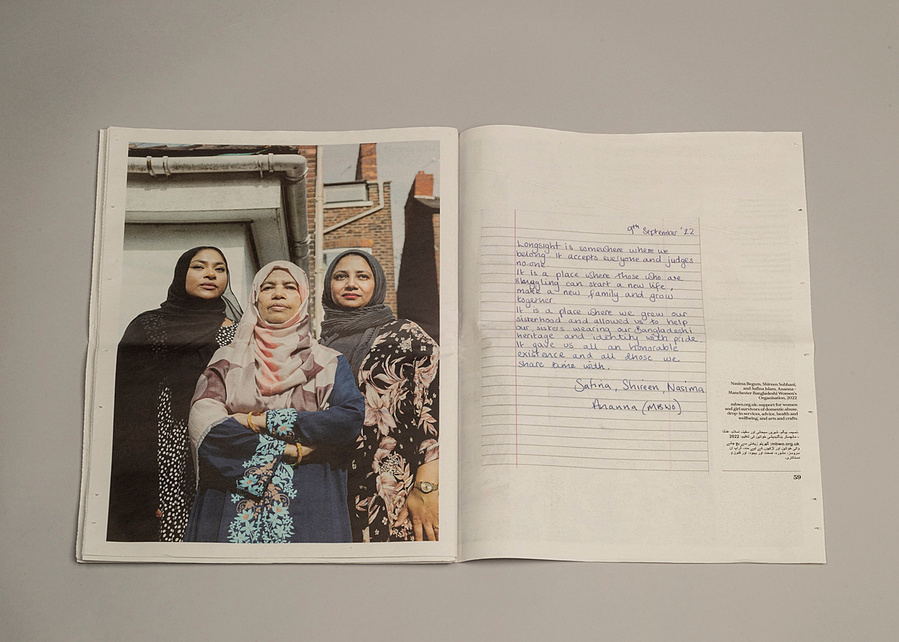 9th September '22
Longsight is somewhere where we
belong. It accepts everyone and judges
no-one.
It is a place where those who are
struggling can start a new life,
make a new family and grow
together.
It is a place where we grew our
sisterhood and allowed us to help
our sisters wearing our Bangladeshi
heritage and identity with pride.
It gave us all an honorable
existence and all those we
share time with.
Safina, Shireen, Nasima
Ananna (MBWO)
Nasima Begum, Shireen Subhani,
and Safina Islam, Ananna –
Manchester Bangladeshi Women's
Organisation, 2022
mbwo.org.uk: support for women
and girl survivors of domestic abuse,
drop-in services, advice, health and
wellbeing, and arts and crafts.
59